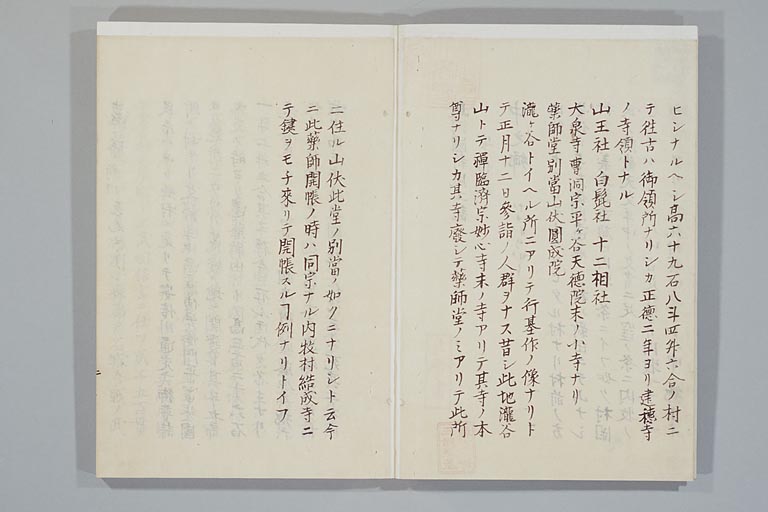 ヒシナルヘシ高六十九石八斗四舛六合ノ村ニ
テ徃古ハ御領所ナリシカ正徳二年ヨリ建穂寺
ノ寺領トナル
山王社 白髭社 十二相社
大泉寺曹洞宗平ヶ谷天徳院末ノ小寺ナリ
藥師堂別當山伏圓成院
瀧ヶ谷トイヘル所ニアリテ行基作ノ像ナリト
テ正月十二日參詣ノ人群ヲナス昔シ此地瀧谷
山トテ禪臨済宗妙心寺末ノ寺アリテ其寺ノ本
尊ナリシカ其寺廢シテ藥師堂ノミアリテ此所
ニ住ル山伏此堂ノ別當ノ如クニナリシト云今
ニ此藥師開帳ノ時ハ同宗ナル内牧村結成寺ニ
テ鍵ヲモチ來リテ開帳スルヿ例ナリトイフ